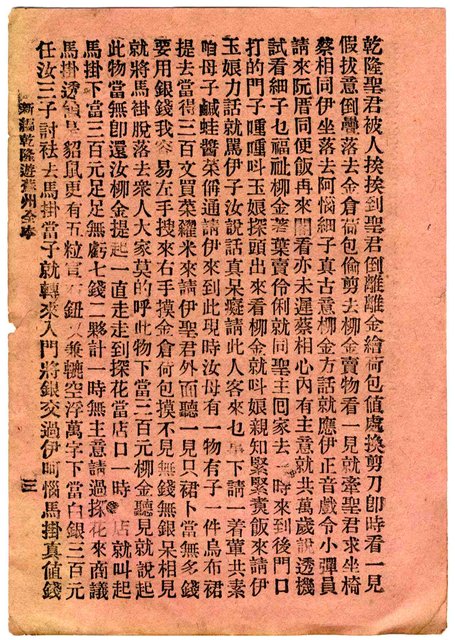 乾隆聖君被人挨挨到聖君倒離離金繪荷包值處換剪刀卽時看一見
假拔意倒疊落去金倉荷包偷剪去柳金賣物看一見就牽聖君求坐椅
蔡相同伊坐落去阿惱細子真古意柳金方話就應伊正音戲令小彈員
請來阮厝同便飯再來關看亦未遲蔡相心內有主意就共萬歲說透機
試看細子乜福祉柳金荖葉賣伶俐就同聖主囘家去一時來到後門口
打的門子喠喠呌玉娘探頭出來看柳金就呌娘親知緊緊煑飯來請伊
玉娘力話就罵伊子汝說話真呆癡請此人客來乜事下請一着葷共素
咱母子鹹蛙醬菜俩通請伊來到此現時汝母有一物有子一件烏布裙
提去當得三百文買菜糴米來請伊聖君外面聽一見只裙卜當無多錢
要用銀錢我容易左手搜來右手摸金倉荷包摸不見無錢無銀呆相見
就將馬褂脫落去衆人大家莫的呼此物下當三百元柳金聽見就說起
此物當無卽還汝柳金提起一直走走到探花當店口一時 店就叫起
馬掛下當三百元足足無虧七錢二夥計一時無主意請過探花來商議
馬掛透領是貂鼠更有五粒 鈕 兼轆空浮萬字下當白銀三百元
任汝三子討祛去馬掛當子就轉來入門將銀交過伊呵惱馬掛真值錢
新編乾隆遊蘇州全本
三